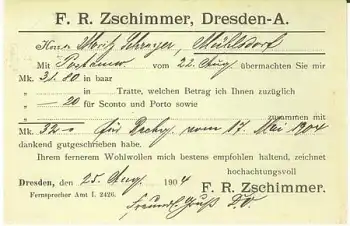 F. R. Zschimmer, Dresden-A.
Herrn Moritz Schreyer, Mühlsdorf
Mit Postanw vom 22. Aug. übermachten Sie mir
Mk. 31.80 in baar
„ — in Tratte, welchen Betrag ich Ihnen zuzüglich
„ —20 für Sconto und Porto sowie
„ zusammen mit
Mk. 32.- für Rechng. vom 17. Mai 1904
dankend gutgeschrieben habe.
Ihrem ferneren Wohlwollen mich bestens empfohlen haltend, zeichnet
hochachtungsvoll
Dresden, den 25. Aug. 1904
F. R. Zschimmer.
Fernsprecher Amt I. 2426.
freundl. Gruß